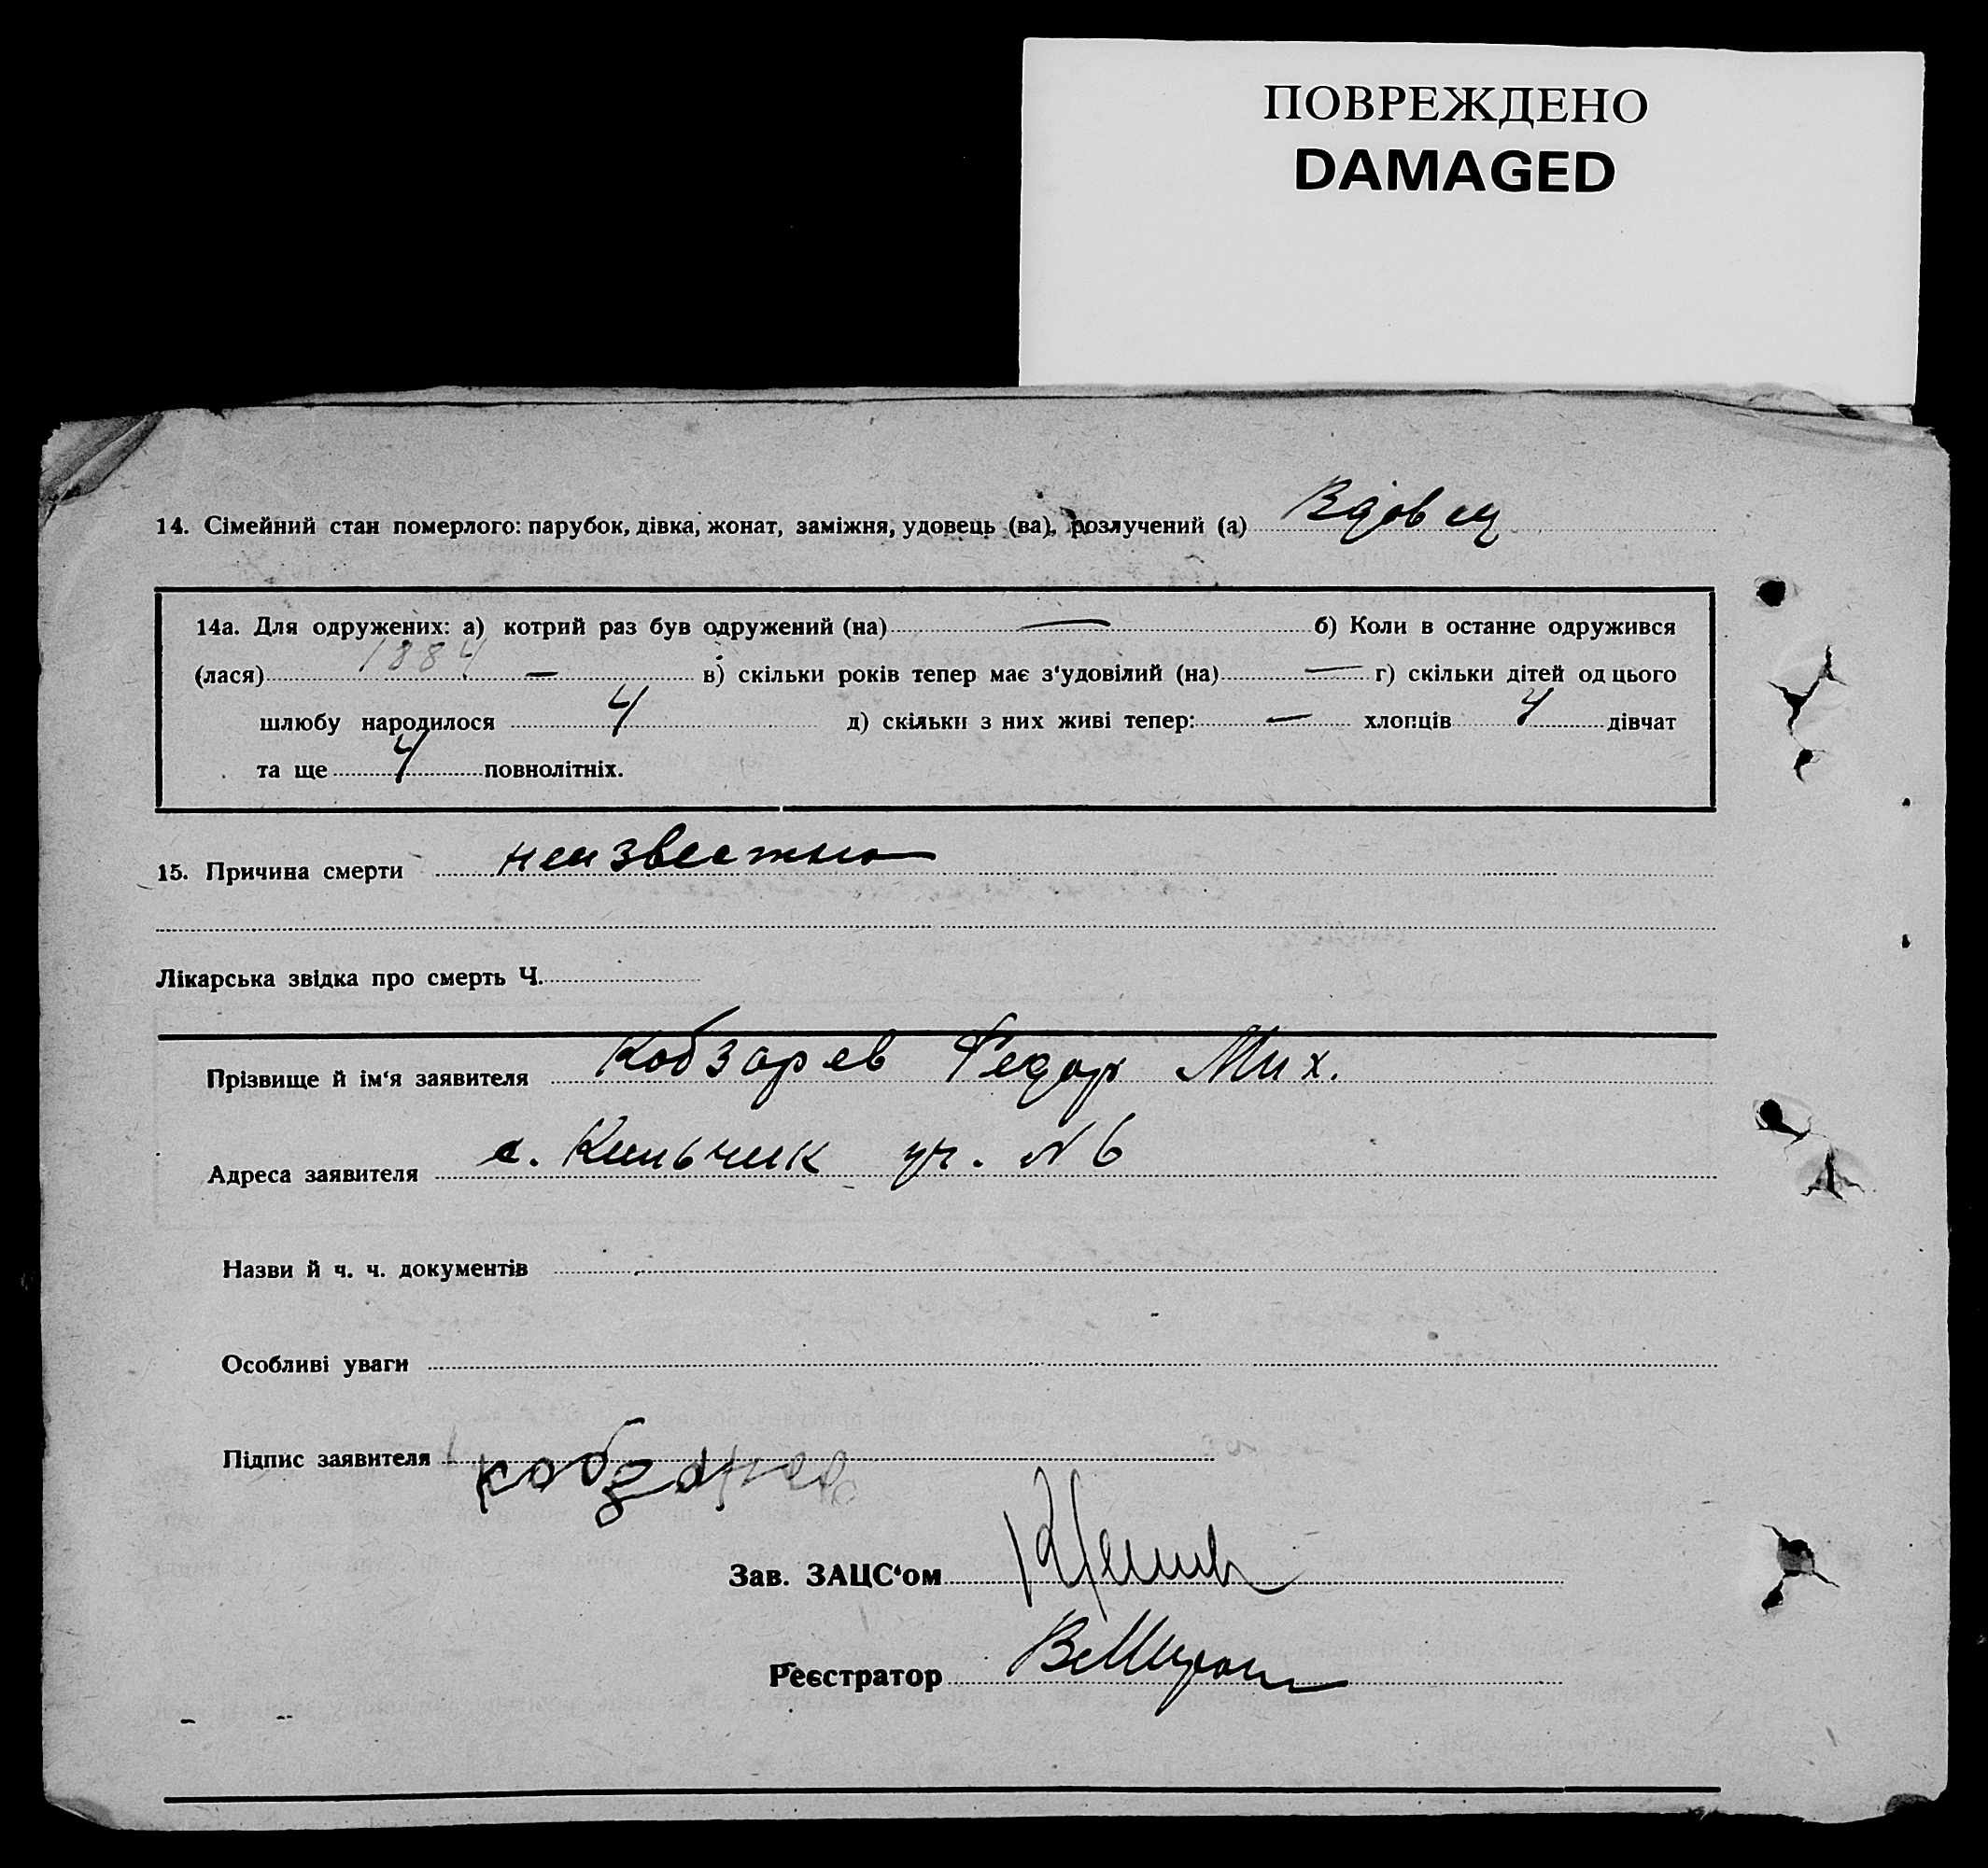 ПОВРЕЖДЕНО
DAMAGED
14. Сімейний стан померлого: парубок, дівка, жонат, заміжня, удовець (ва), розлучений (а) Вдовец
14а. Для одружених: а) котрий раз був одружений (на) — б) Коли в останнє одружився
(лася) 1884 — в) скільки років тепер має з‘удовілий (на) — г) скільки дітей од цього
шлюбу народилося 4 д) скільки з них живі тепер: — хлопців 4 дівчат
та ще 4 повнолітніх.
15. Причина смерти неизвестно
Лікарська звідка про смерть Ч.
Прізвище й ім‘я заявителя Кобзарев Федор Мих.
Адреса заявителя с. Кильчик уч. № 6
Назви й ч. ч. документів
Особливі уваги
Підпис заявителя Кобзарев
Зав. ЗАЦС‘ом
Реєстратор